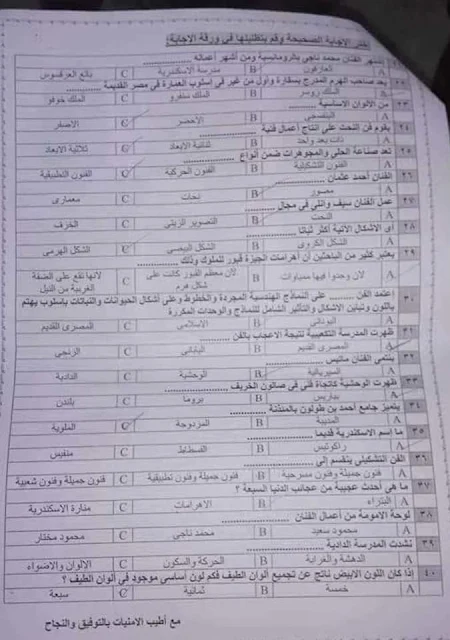 اختر الإجابة الصحيحة وقم بتظليلها في ورقة الاجابة:
اشتهر الفنان محمد ناجي بالرومانسية ومن أشهر أعماله
A B مدرسة الاسكندرية C بائع العرقسوس
يعد صاحب الهرم المدرج بسقارة وأول من غير في اسلوب العمارة في مصر القديمة
A الملك زوسر B الملك سنفرو C الملك خوفو
٢٣ من الألوان الاساسية
A البنفسجي B الاخضر C الاصفر
٢٤ يقوم فن النحت على انتاج أعمال فنية
A ذات بعد واحد B ثنائية الابعاد C ثلاثية الابعاد
٢٥ تعد صناعة الحلى والمجوهرات ضمن أنواع
A الفنون التشكيلية B الفنون الحركية C الفنون التطبيقية
٢٦ الفنان أحمد عثمان
A مصور B نحات C معمارى
٢٧ عمل الفنان سيف وانلي في مجال
A النحت B التصوير الزيتي C الخزف
٢٨ أى الأشكال الآتية أكثر ثباتا
A الشكل الكروى B الشكل البيضى C الشكل الهرمى
٢٩ يعتبر كثير من الباحثين أن اهرامات الجيزة قبور للملوك وذلك
A لأن وجدوا فيها مومياوات B لأن معظم القبور كانت على شكل هرم C لانها تقع على الضفة الغربية من النيل
٣٠ إعتمد الفن على النماذج الهندسية المجردة والخطوط وعلى أشكال الحيوانات والنباتات باسلوب يهتم
باللون وتباين الاشكال والتأثير الشامل للنماذج والوحدات المكررة
A اليوناني B الاسلامى C المصرى القديم
٣١ ظهرت المدرسة التكعيبية نتيجة الاعجاب بالفن
A المصرى القديم B اليابانى C الزنجى
٣٢ ينتمي الفنان ماتيس
A السيريالية B الوحشية C الدادية
٣٣ ظهرت الوحشية كاتجاة فني في صالون الخريف
A بباريس B بروما C بلندن
٣٤ يتميز جامع أحمد بن طولون بالمئذنة
A المدببة B المزدوجة C الملوية
٣٥ ما إسم الاسكندرية قديما
A راكوتيس B الفسطاط C منفيس
٣٦ الفن التشكيلي ينقسم إلى
A فنون جميلة وفنون مسرحية B فنون جميلة وفنون تطبيقية C فنون جميلة وفنون شعبية
٣٧ ما هى أحدث عجيبة من عجائب الدنيا السبعة ؟
A البتراء B الاهرامات C منارة الاسكندرية
٣٨ لوحة الامومة من أعمال الفنان
A محمود سعيد B محمد ناجى C محمود مختار
٣٩ نشدت المدرسة الدادية
A الدهشة والغرابة B الحركة والسكون C الالوان والاضواء
٤٠ إذا كان اللون الابيض ناتج عن تجميع ألوان الطيف فكم لون أساسى موجود في ألوان الطيف ؟
A خمسة B ثمانية C سبعة
مع أطيب الامنيات بالتوفيق والنجاح